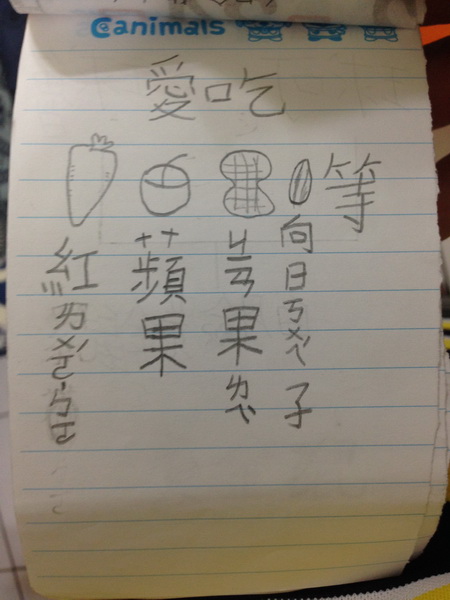 Canimals
愛吃
等
紅ㄌㄨㄛˊ˙ㄅㄛ
蘋果
ㄐㄧㄢ果ㄌㄟˋ
向日ㄎㄨㄟˊ子